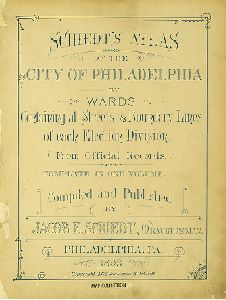 SCHIEDT'S ATLAS
OF THE
CITY OF PHILADELPHIA
BY
WARDS
Containing all Streets & Boundary Lines
of each Election Division,
From Official Records.
COMPLETE IN ONE VOLUME.
Compiled and Published
BY
JACOB E. SCHIEDT, DRAUGHTSMAN.
PHILADELPHIA, PA.
Copyright